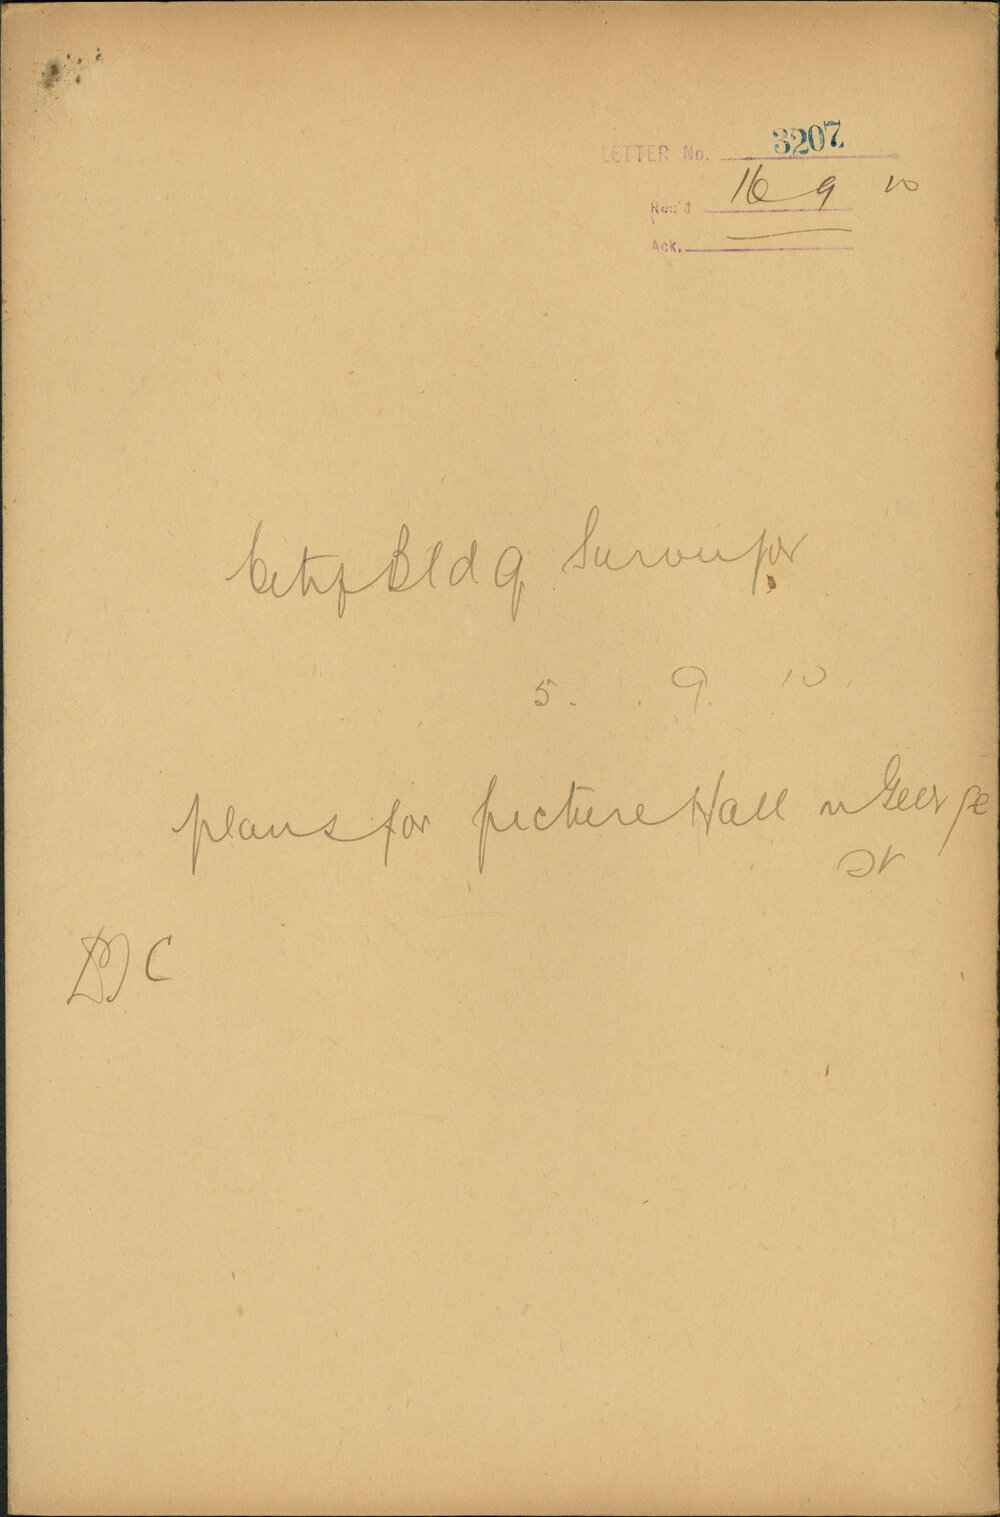 LETTER No. 3207
Rec'd 16 9 10
Ack.
City Bldg Surveyor
5. 9. 10.
plans for picture Hall n George
St
C